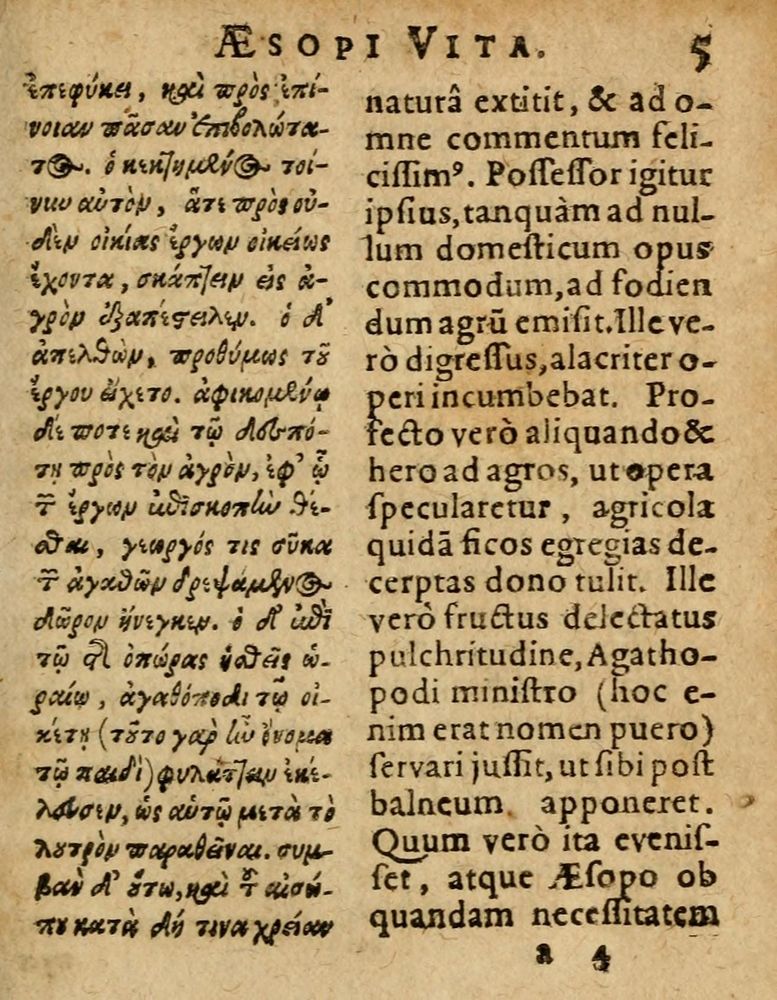 ÆSOPI VITA. 5
ἐπεφύκει, καὶ πρὸς ἐπί-
νοιαν πᾶσαν ἐπιβολώτα-
τος. ὁ κεκτημένος τοί-
νυν αὐτὸν, ἅτε πρὸς οὐ-
δὲν οἰκίας ἔργων οἰκείως
ἔχοντα, σκάπτειν εἰς ἀ-
γρὸν ἐξαπέστειλεν. ὁ δ'
ἀπελθὼν, προθύμως τοῦ
ἔργου εἴχετο. ἀφικομένῳ
δέ ποτε καὶ τῷ δεσπό-
τῃ πρὸς τὸν ἀγρὸν, ἐφ' ᾧ
τῶν ἔργων ἐπισκοπὴν θέ-
σθαι, γεωργός τις σῦκα
τῶν ἀγαθῶν δρεψάμενος
δῶρον ἤνεγκεν. ὁ δ' ἐπὶ
τῷ τῆς ὀπώρας ἡσθεὶς ὡ-
ραίῳ, ἀγαθόποδι τῷ οἰ-
κέτῃ (τοῦτο γὰρ ἦν ὄνομα
τῷ παιδὶ) φυλάττειν ἐκέ-
λευσεν, ὡς αὐτῷ μετὰ τὸ
λουτρὸν παραθεῖναι. συμ-
βὰν δ' οὕτω, καὶ τοῦ αἰσώ-
που κατὰ δή τινα χρείαν
naturâ extitit, & ad o-
mne commentum feli-
cissimꝰ. Possessor igitur
ipsius, tanquàm ad nul-
lum domesticum opus
commodum, ad fodien
dum agrū emisit. Ille ve-
rò digressus, alacriter o-
peri incumbebat. Pro-
fecto verò aliquando &
hero ad agros, ut opera
specularetur, agricola
quidā ficos egregias de-
cerptas dono tulit. Ille
verò fructus delectatus
pulchritudine, Agatho-
podi ministro (hoc e-
nim erat nomen puero)
servari jussit, ut sibi post
balneum apponeret.
Quum verò ita evenis-
set, atque Æsopo ob
quandam necessitatem
a 4